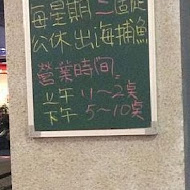 每星期二固定
公休出海捕魚
營業時間,
上午 11~2點
下午 5~10點